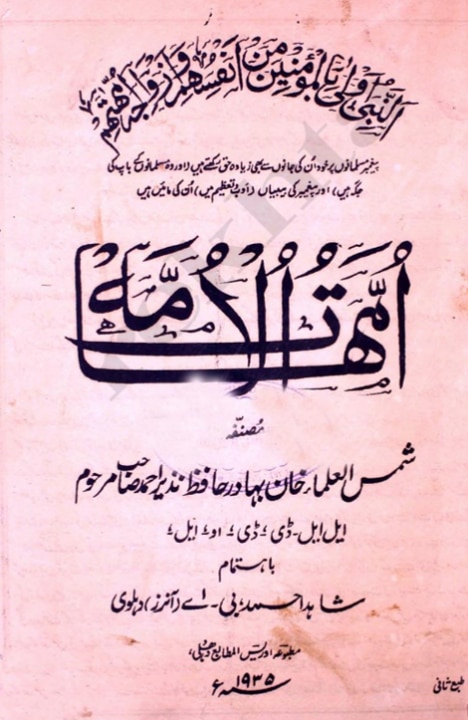 النَّبِيُّ أَوْلَىٰ بِالْمُؤْمِنِينَ مِنْ أَنفُسِهِمْ وَأَزْوَاجُهُ أُمَّهَاتُهُمْ
پیغمبر مسلمانوں پر خود اُن کی جانوں سے بھی زیادہ حق رکھتے ہیں (اور وہ مسلمانوں کے باپ کی
جگہ ہیں) اور پیغمبر کی بیبیاں (ادب و تعظیم میں) اُن کی مائیں ہیں
اُمَّهَاتُ الْاُمَّه
مُصنّفہ
شمس العلماء خان بہادر حافظ نذیر احمد صاحب مرحوم
ایل ایل۔ڈی؛ ڈی؛ او؛ ایل؛
باہتمام
شاہد احمد؛ بی۔اے (آنرز) دہلوی
مطبوعہ ادریس المطابع دہلی؛
۱۹۳۵ء
طبع ثانی